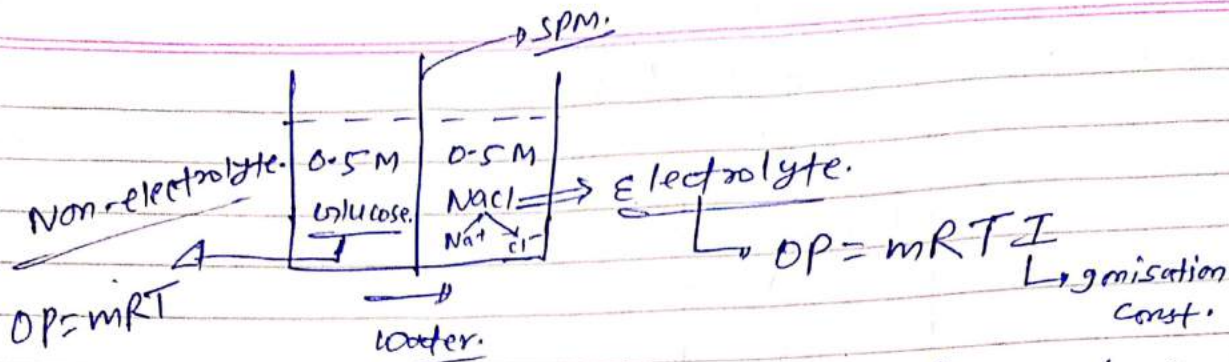 SPM.
Non-electrolyte.
0.5 M
Glucose.
0.5 M
NaCl
Na+ Cl-
Electrolyte.
OP = mRT
OP = mRTI
Ionisation
const.
water.